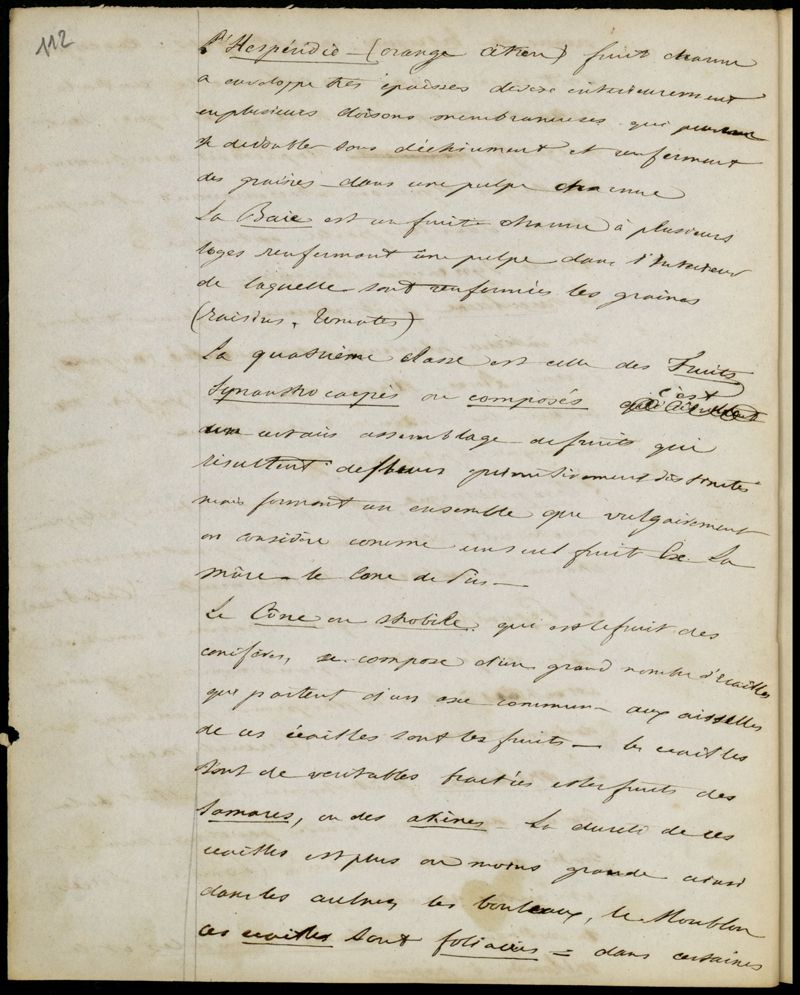 112
L'Hespéridie – (orange citron) fruit charnu
a enveloppe très épaisses divisé interieurement
en plusieurs cloisons membraneuses qui peuvent
se dedoubler sans déchirument et renferment
des graines – dans une pulpe charnue
La Baie est un fruit charnu à plusieurs
loges renfermant une pulpe dans l'interieur
de laquelle sont renfermées les graines
(raisins, tomates)
La quatrième classe est celle des Fruits
Synanthrocarpés ou composés c'est
un assemblage de fruits qui
résultent de fleurs primitivement distinctes
mais formant un ensemble que vulgairement
on considère comme un seul fruit Ex La
mûre – le Cone de Pin –
Le Cône ou strobile qui est le fruit des
conifères, se compose d'un grand nombre d'écailles
qui partent d'un axe commun – aux aisselles
de ces écailles sont les fruits – les écailles
sont de veritables bractées et les fruits des
Samares, ou des akènes – La dureté de ces
écailles est plus ou moins grande ainsi
dans les aulnes, les bouleaux, le Houblon
ces écailles sont foliacées = dans certaines